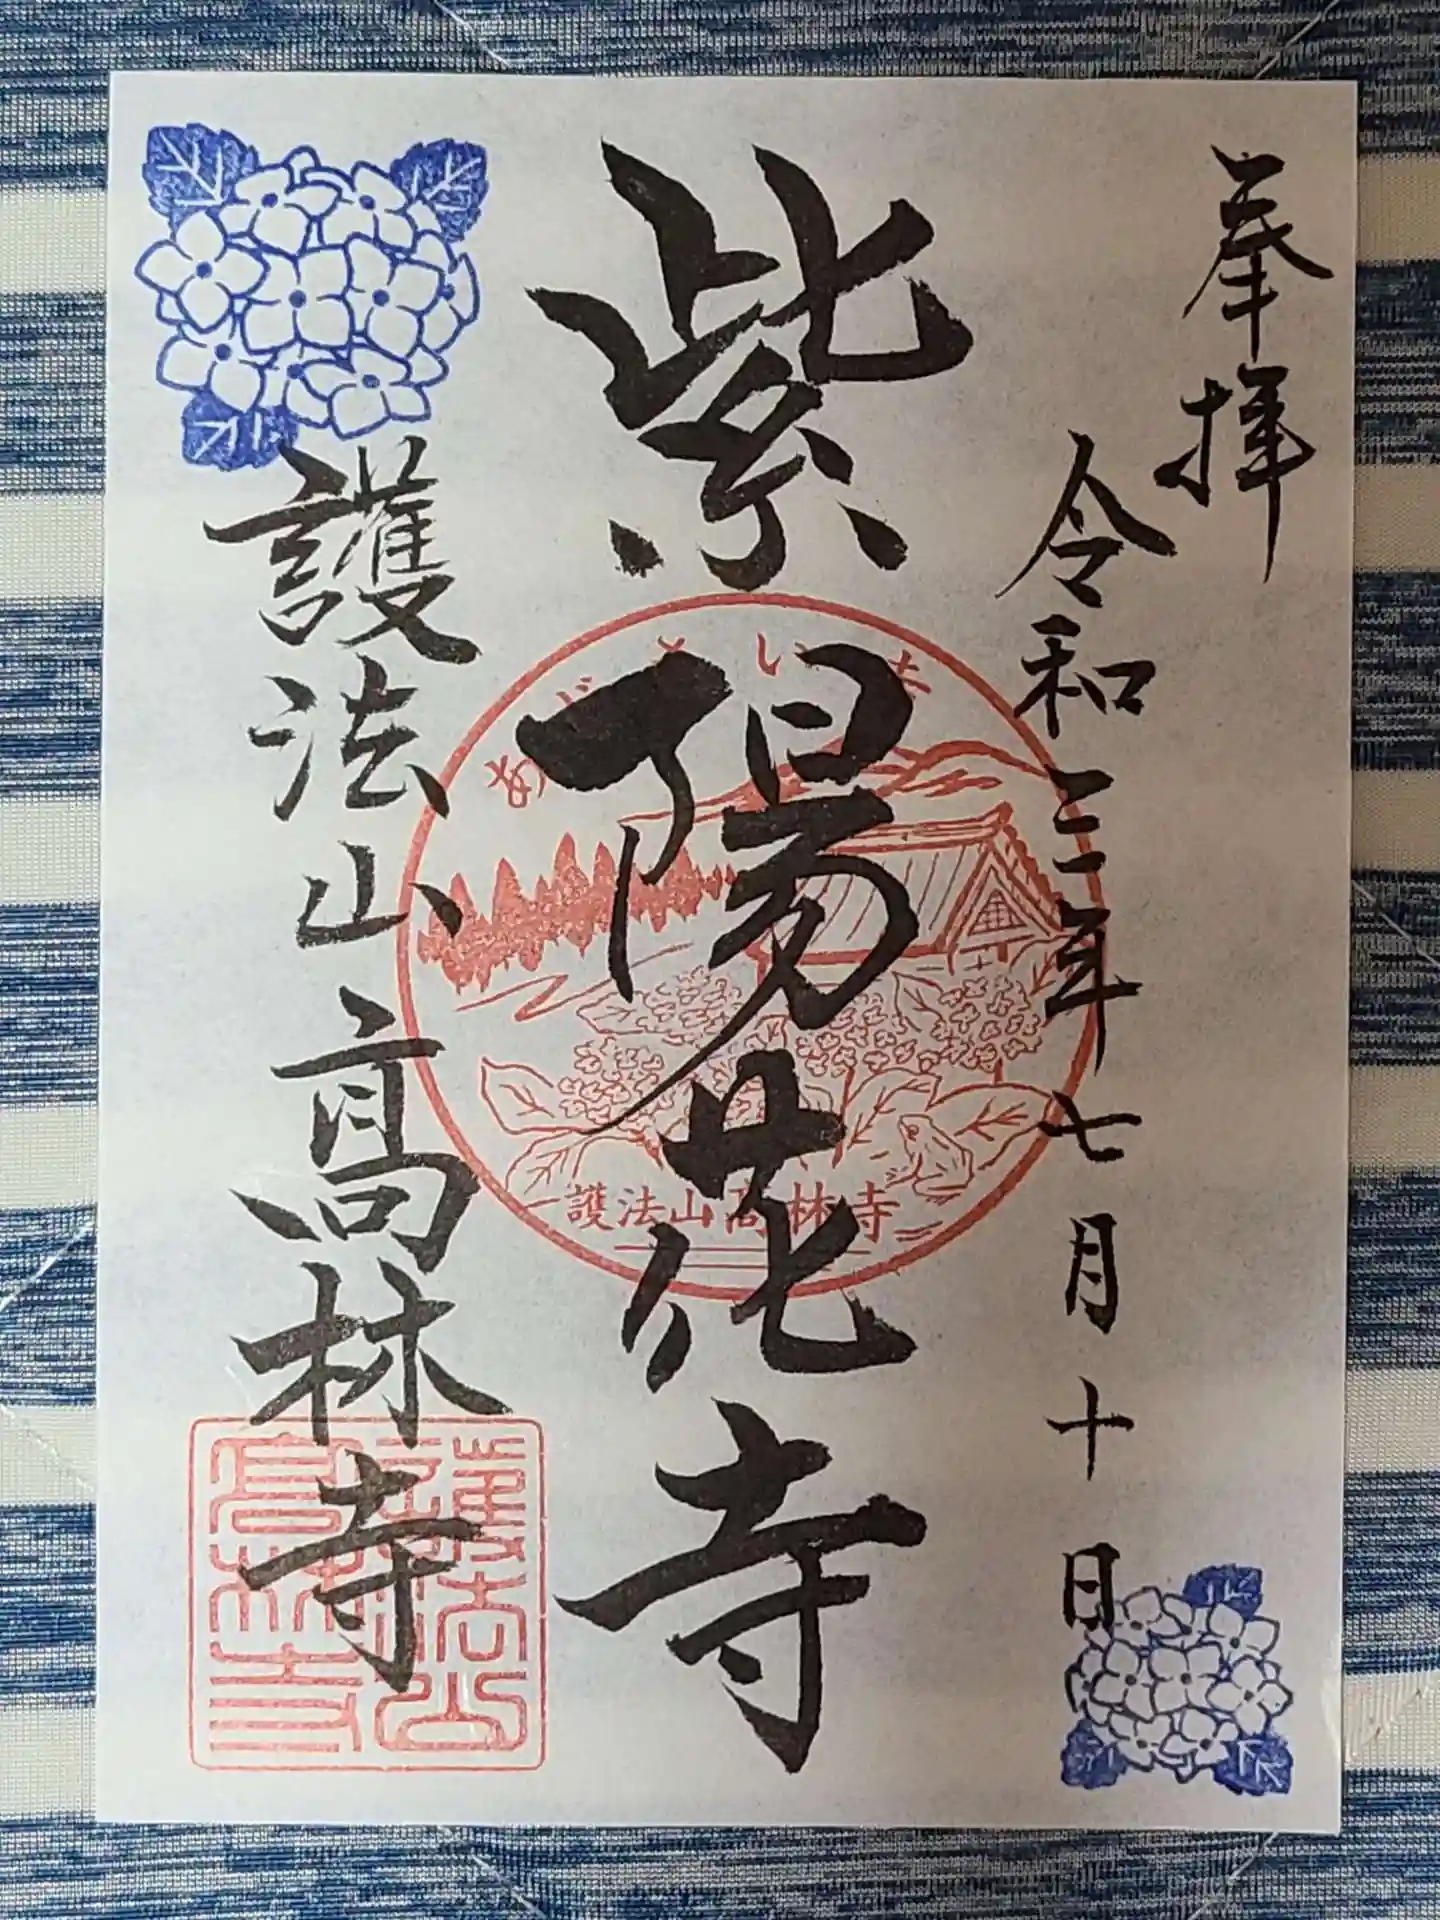 奉拝
令和三年七月十日
紫陽花寺
あじさい寺
護法山高林寺
護法山髙林寺
護法山高林寺